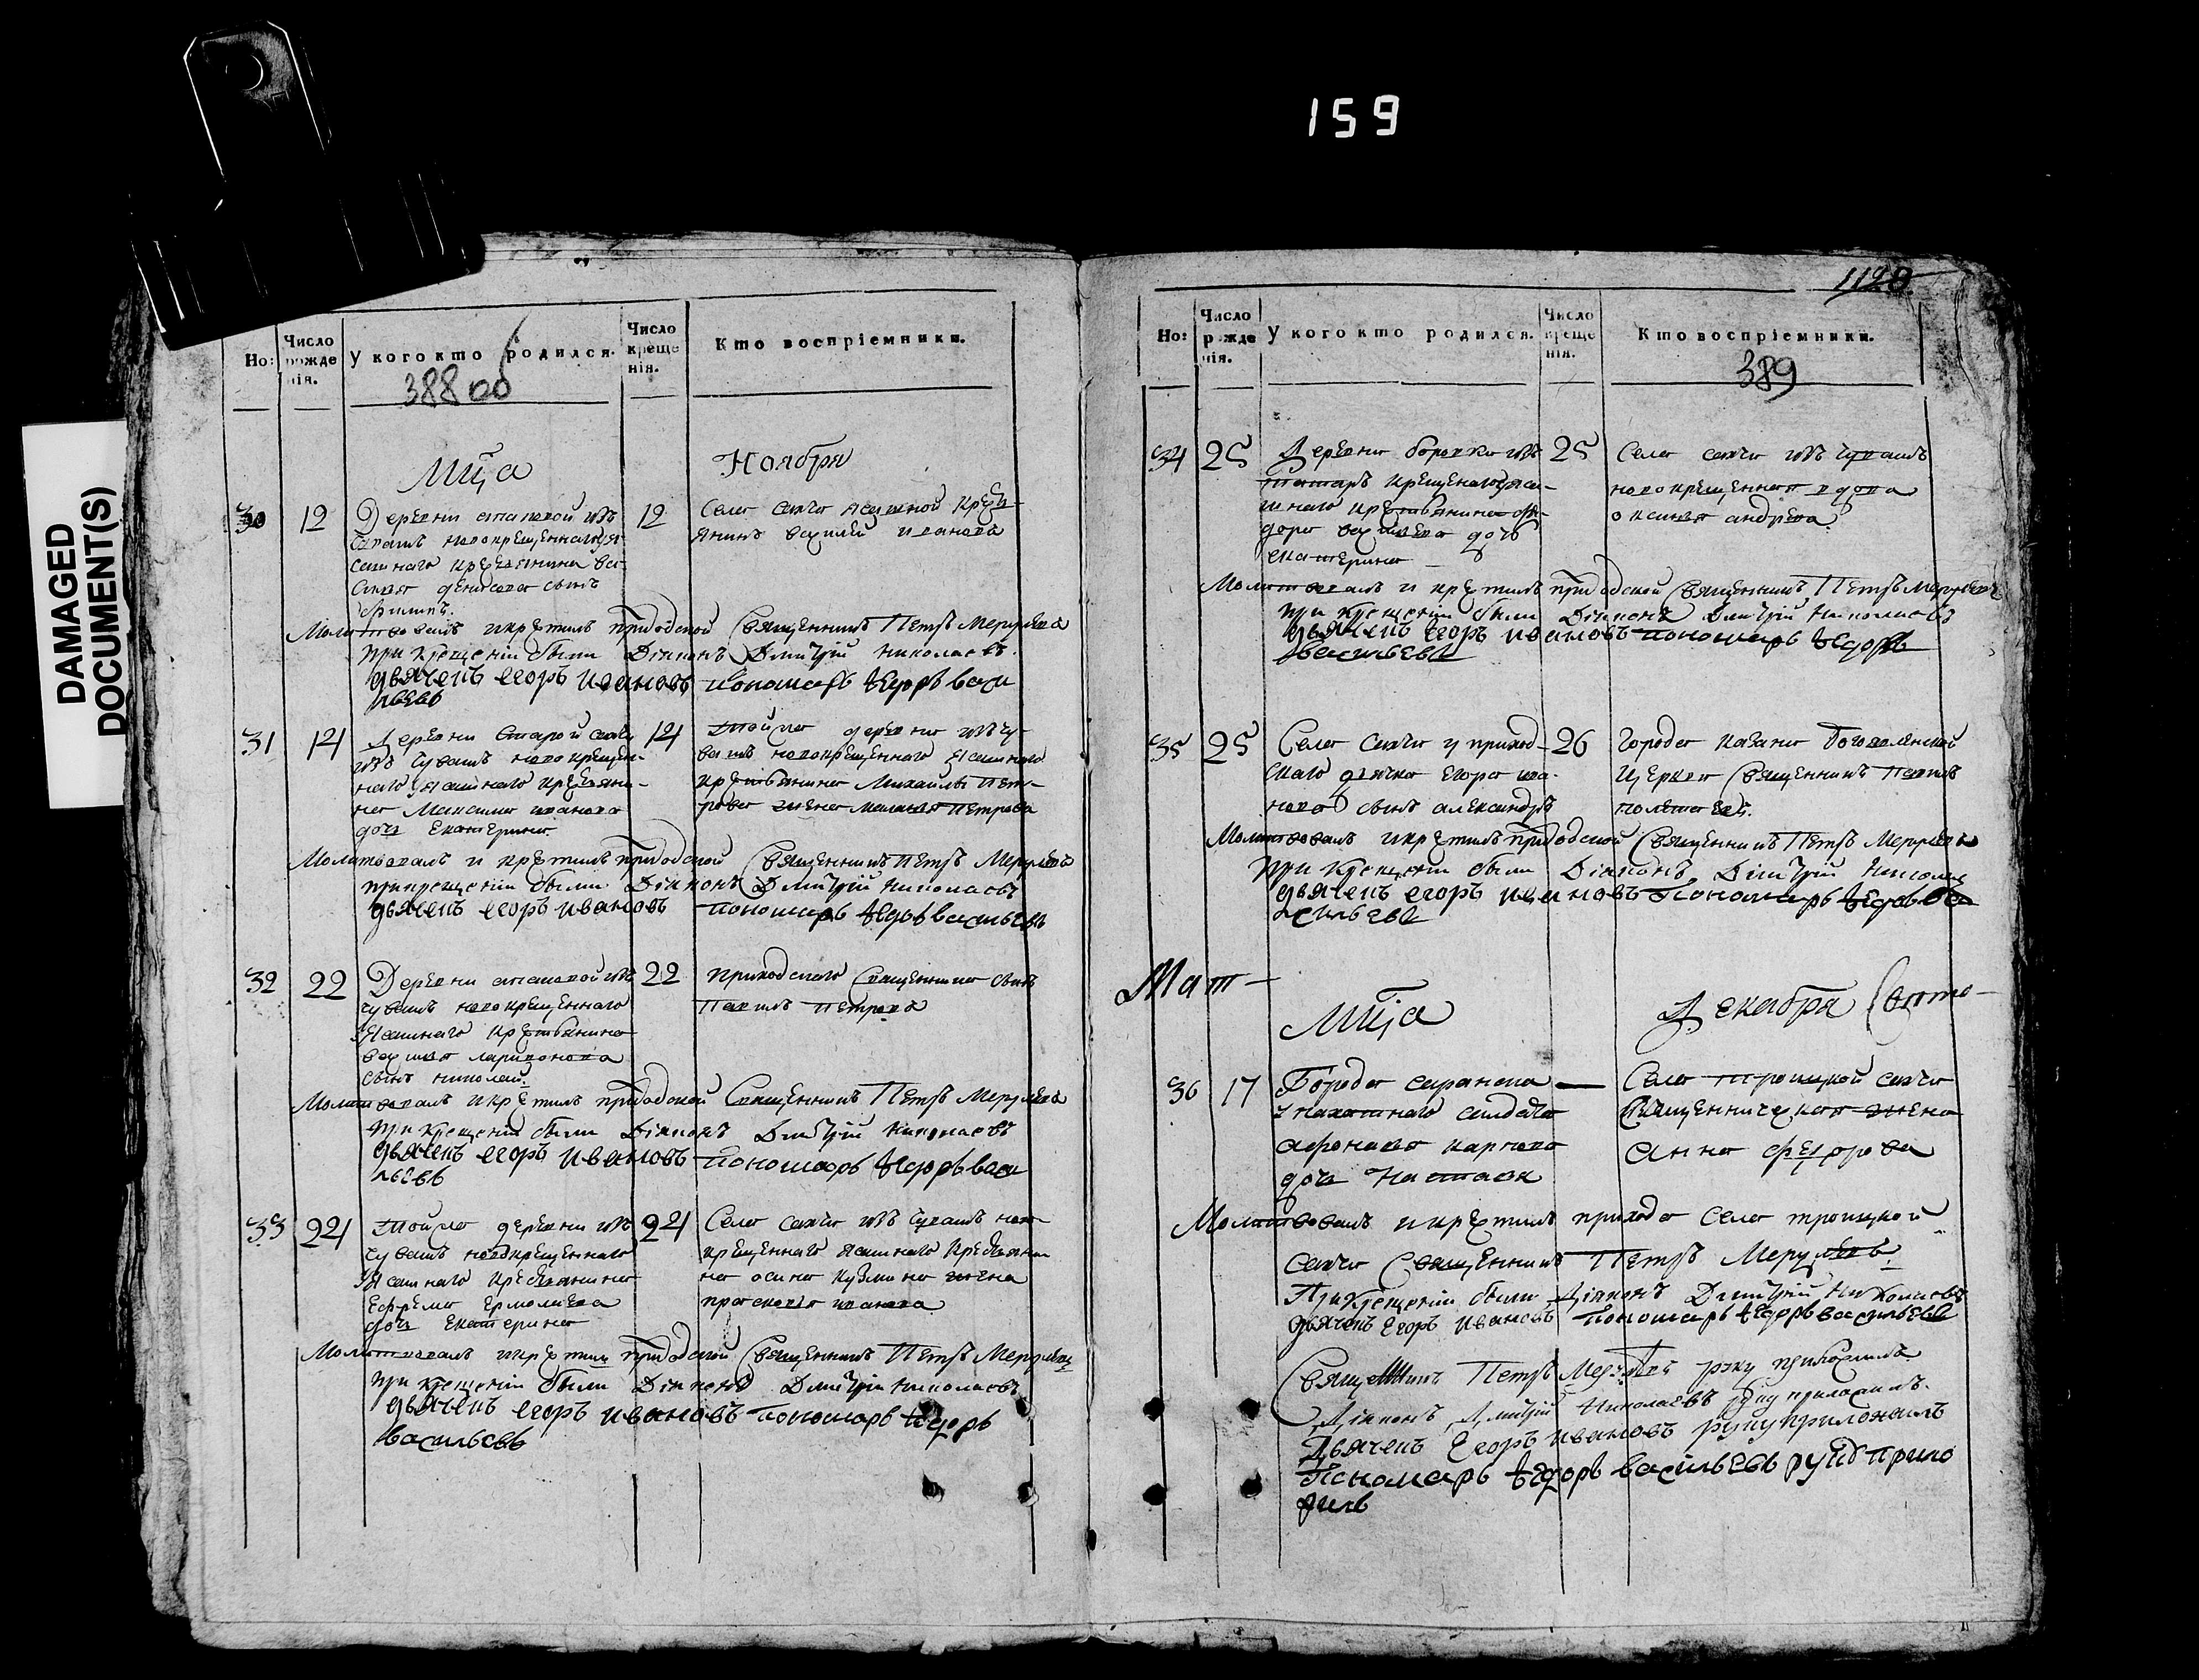 159
DAMAGED
DOCUMENT(S)
Но:
Число
рожде
нія.
У кого кто родился.
388 об
Число
креще
нія.
Кто воспріемники.
Мца
Ноября
30
12
Деревни
чувашъ новокрещеннаго яса
шнаго крестьянина ва
силья денисова сынъ
филипъ.
12
Села сахчи ясашной кресть
янинъ василий иванова
Молитвовалъ и крестилъ приходской священникъ Петръ
При крещеніи были Діяконъ Дмитрій николаевъ
дьячекъ егоръ ивановъ пономарь ѣедоръ васи
льевъ
31
14
Деревни Старой сахчи
изъ чувашъ новокрещен
наго ясашнаго крестьяни
на Максима иванова
дочь Екатерина
14
Тойже деревни изъ чу
вашъ новокрещеннаго ясашнаго
крестьянина Михайлы Пет
рова жена маланья Петрова
Молитвовалъ и крестилъ приходской священникъ Петръ
при крещеніи были Діяконъ Дмитрій николаевъ
дьячекъ егоръ ивановъ пономарь ѣедоръ васильевъ
32
22
Деревни
чувашъ новокрещеннаго
ясашнаго крестьянина
василья ларионова
сынъ николай.
22
приходскаго священника сынъ
Павилъ Петрова
Молитвовалъ и крестилъ приходской священникъ Петръ
При крещеніи были Діяконъ Дмитрій николаевъ
дьячекъ егоръ ивановъ пономарь ѣедоръ васи
льевъ
33
24
Тойже деревни изъ
чувашъ новокрещеннаго
ясашнаго крестьянина
Ефрема Ермолаева
дочь Екатерина
24
Села сахчи изъ чувашъ ново
крещеннаго ясашнаго крестьяни
на осипа кузмина жена
прасковья иванова
Молитвовалъ и крестилъ приходской священникъ Петръ
При крещеніи были Діяконъ Дмитрій николаевъ
дьячекъ егоръ ивановъ пономарь ѣедоръ
васильевъ
1128
Но:
Число
рожде
нія.
У кого кто родился.
Число
креще
нія.
Кто воспріемники.
389
34
25
Деревни боровки изъ
татаръ крещенаго яса
шнаго крестьянина фе
дора василева дочь
екатерина
25
Села сахчи изъ чувашъ
новокрещенная вдова
оксинья андрева
Молитвовалъ и крестилъ приходской священникъ Петръ
При крещеніи были Діяконъ Дмитрій николаевъ
дьячекъ егоръ ивановъ пономарь ѣедоръ
васильевъ
35
25
Села сахчи у приход
скаго дьячка егора ива
нова сынъ александръ
26
Города казани богоявленской
церкви священникъ павилъ
Молитвовалъ и крестилъ приходской священникъ Петръ
При крещеніи были Діяконъ Дмитрій николаев
дьячекъ егоръ ивановъ Пономарь ѣедоръ ва
сильевъ
Мат
Мца
Декабря
36
17
Города саранска
солдата
афонасья карпова
дочь Настасья
Села троицкой сахчи
священническая жена
Анна федорова
Молитвовалъ и крестилъ прихода села троицкой
сахчи священникъ Петръ
При крещеніи были Діяконъ Дмитрій Николаевъ
дьячекъ Егоръ Ивановъ пономарь ѣедоръ васильевъ
Священникъ Петръ руку приложилъ
Діяконъ Дмитрій Николаевъ руку приложилъ.
Дьячекъ Егоръ ивановъ руку приложилъ
Пономарь ѣедоръ васильевъ руку прило
жилъ